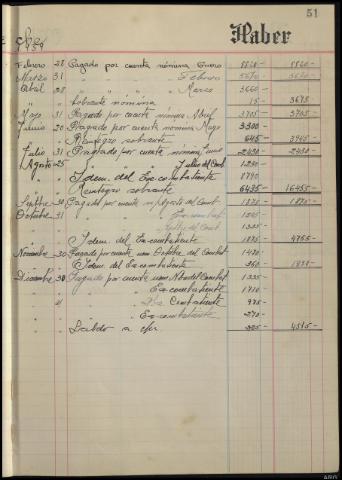 51
Haber
1939
Febrero 28 Pagado por cuenta nómina Enero 5860- 5860-
Marzo 31 " " " " Febrero 5670 5670-
Abril 28 " " " " Marzo 3660
" " Sobrante nomina 15- 3675
Mayo 31 Pagado por cuenta nómina Abril 3705- 3705-
Junio 20 Pagado por cuenta nomina Mayo 3300-
" Reintegro sobrante 645- 3945-
Julio 31 Pagado por cuenta nómina Junio 2430- 2430-
Agosto 25 " " Julio del Comb 1230-
" Idem. del Ex-combatiente 8790
" Reintegro sobrante 6435 16455-
Sepbre 30 Pagado por cuenta n/ Agosto del Comb. 1875- 1870-
Octubre 31 " " Ex-combat.
" " Sepbre del Comb. 1335-
Idem. del Ex-combatiente 1875- 4755-
Noviembre 30 Pagado por cuenta nom Octubre del Combat 1470-
Idem del Ex-combatiente 360-
Diciembre 30 Pagado por cuenta nom Nbre del Combat 1335-
" " Ex-combatiente 1710-
" " " Dbre Combatiente 975-
" " Ex-combatiente 270-
Saldo a 4515-